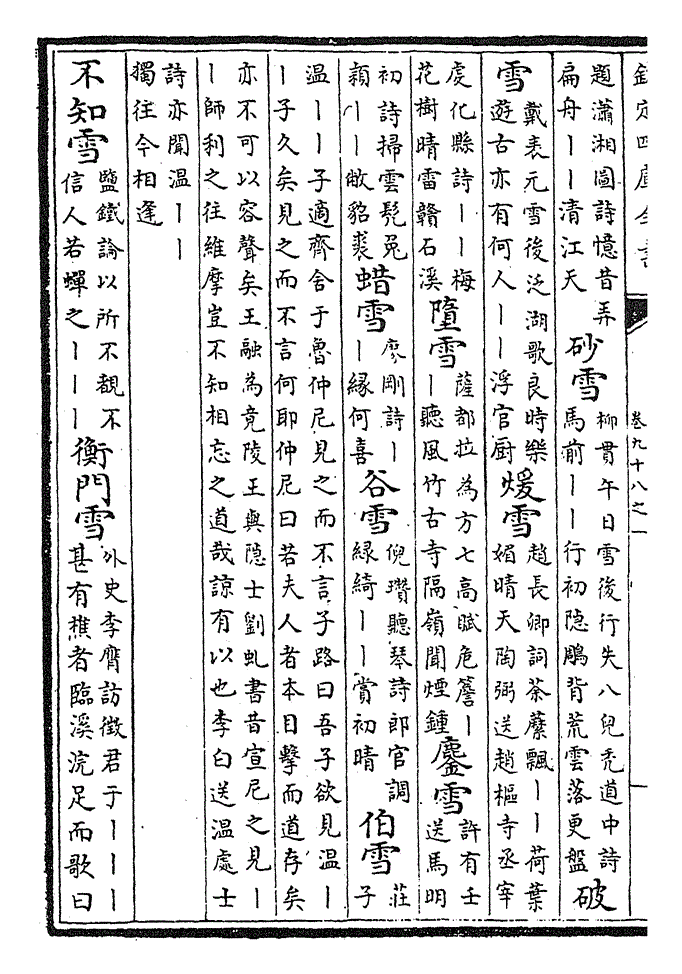 欽定四庫全書 卷九十八之一
題瀟湘圖詩憶昔弄扁舟丨丨清江天 砂雪 柳貫午日雪後行失八兒禿道中詩馬前丨丨行初隱鵰背荒雲落更盤 破
雪 戴表元雪後泛湖歌良時樂遊古亦有何人丨丨浮官厨 煖雪 趙長卿詞荼蘼飄丨丨荷葉媚晴天陶弼送趙樞寺丞宰
虔化縣詩丨丨梅花樹晴雷贛石溪 墮雪 薩都拉為方七高賦危簷丨丨聽風竹古寺隔嶺聞煙鍾 鏖雪 許有壬送馬明
初詩掃雲髡兔穎丨丨敝貂裘 蜡雪 廖剛詩丨丨緣何喜 谷雪 倪瓚聽琴詩郎官調緑綺丨丨賞初晴 伯雪 莊子
温丨丨子適齊舍于魯仲尼見之而不言子路曰吾子欲見温丨丨子久矣見之而不言何耶仲尼曰若夫人者本目擊而道存矣
亦不可以容聲矣王融為竟陵王與隱士劉虬書昔宣尼之見丨丨師利之往維摩豈不知相忘之道哉諒有以也李白送温處士
詩亦聞温丨丨獨往今相逢
不知雪 鹽鐵論以所不覩不信人若蟬之丨丨丨 衡門雪 外史李膺訪徵君于丨丨丨甚有樵者臨溪浣足而歌曰